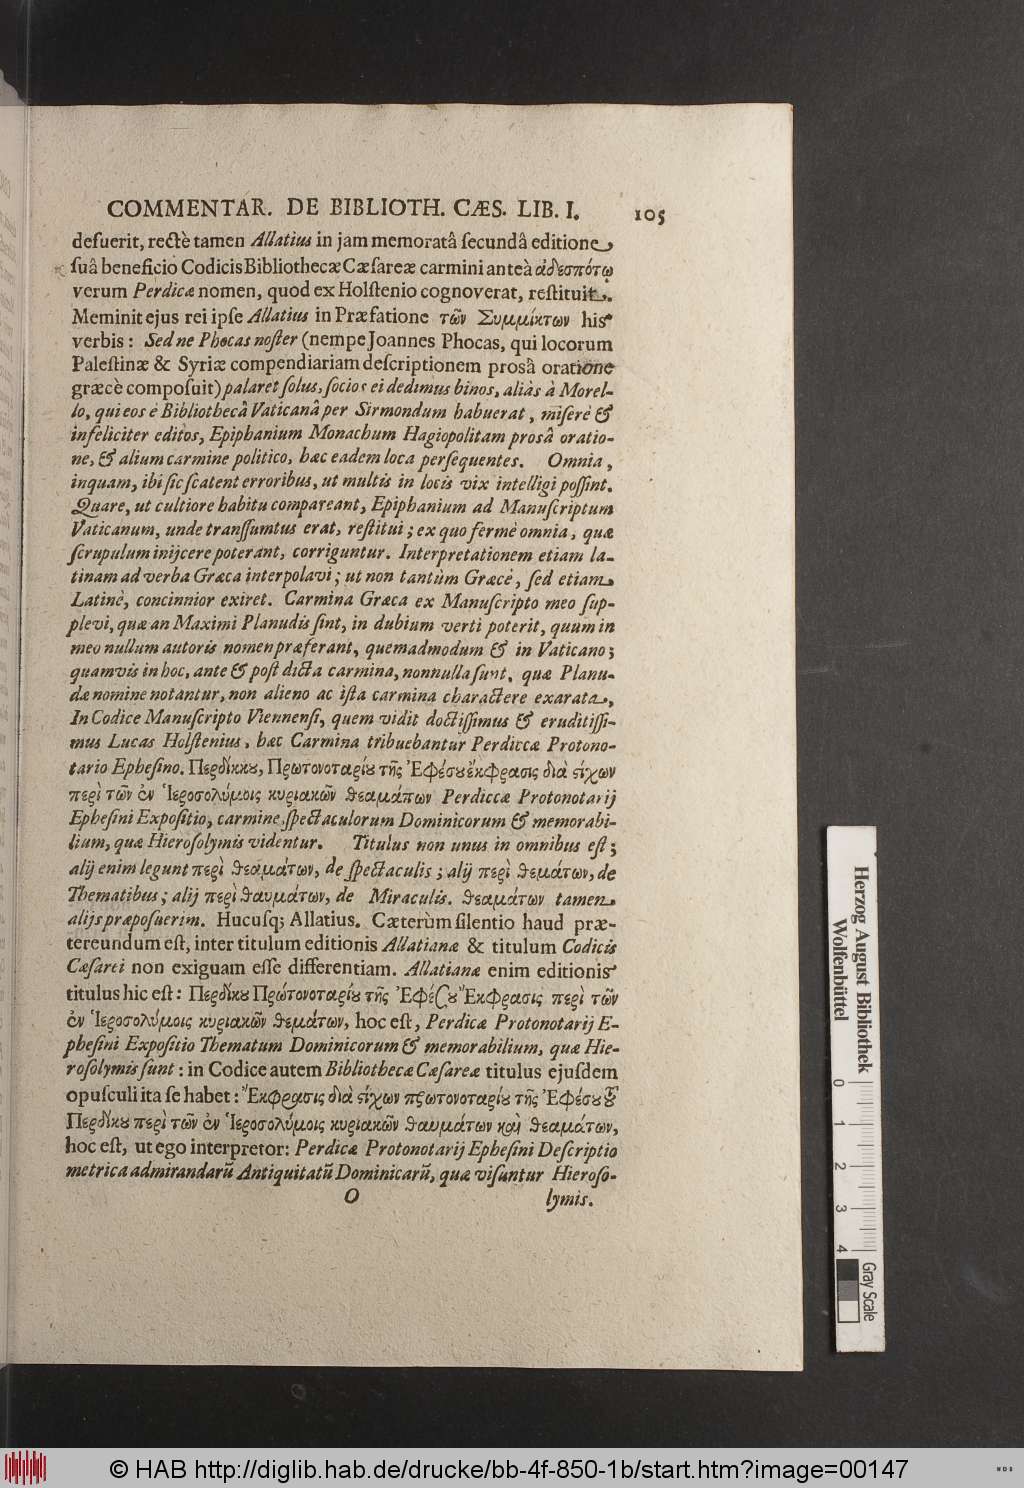 COMMENTAR. DE BIBLIOTH. CÆS. LIB. I. 105
defuerit, rectè tamen Allatius in jam memoratâ secundâ editione
suâ beneficio Codicis Bibliothecæ Cæsareæ carmini anteà ἀδεσπότῳ
verum Perdicæ nomen, quod ex Holstenio cognoverat, restituit.
Meminit ejus rei ipse Allatius in Præfatione τῶν Συμμίκτων his
verbis: Sed ne Phocas noster (nempe Joannes Phocas, qui locorum
Palestinæ & Syriæ compendiariam descriptionem prosâ oratione
græcè composuit) palaret solus, socios ei dedimus binos, aliàs à Morel-
lo, qui eos è Bibliothecâ Vaticanâ per Sirmondum habuerat, miserè &
infeliciter editos, Epiphanium Monachum Hagiopolitam prosâ oratio-
ne, & alium carmine politico, hæc eadem loca persequentes. Omnia,
inquam, ibi sic scatent erroribus, ut multis in locis vix intelligi possint.
Quare, ut cultiore habitu compareant, Epiphanium ad Manuscriptum
Vaticanum, unde transsumtus erat, restitui; ex quo fermè omnia, quæ
scrupulum inijcere poterant, corriguntur. Interpretationem etiam la-
tinam ad verba Græca interpolavi; ut non tantùm Græcè, sed etiam
Latinè, concinnior exiret. Carmina Græca ex Manuscripto meo sup-
plevi, quæ an Maximi Planudis sint, in dubium verti poterit, quum in
meo nullum autoris nomen præferant, quemadmodum & in Vaticano;
quamvis in hoc, ante & post dicta carmina, nonnulla sunt, quæ Planu-
dæ nomine notantur, non alieno ac ista carmina charactere exarata,
In Codice Manuscripto Viennensi, quem vidit doctissimus & eruditissi-
mus Lucas Holstenius, hæc Carmina tribuebantur Perdiccæ Protono-
tario Ephesino. Περδίκκου, Πρωτονοταρίου τῆς Ἐφέσου ἔκφρασις διὰ στίχων
περὶ τῶν ἐν Ἱεροσολύμοις κυριακῶν θεαμάτων Perdiccæ Protonotarij
Ephesini Expositio, carmine, spectaculorum Dominicorum & memorabi-
lium, quæ Hierosolymis videntur. Titulus non unus in omnibus est;
alij enim legunt περὶ θεαμάτων, de spectaculis; alij περὶ θεμάτων, de
Thematibus; alij περὶ θαυμάτων, de Miraculis. θεαμάτων tamen
alijs præposuerim. Hucusq; Allatius. Cæterùm silentio haud præ-
tereundum est, inter titulum editionis Allatianæ & titulum Codicis
Cæsarei non exiguam esse differentiam. Allatianæ enim editionis
titulus hic est: Περδίκου Πρώτονοταρίου τῆς Ἐφέσου Ἔκφρασις περὶ τῶν
ἐν Ἱεροσολύμοις κυριακῶν θεμάτων, hoc est, Perdicæ Protonotarij E-
phesini Expositio Thematum Dominicorum & memorabilium, quæ Hie-
rosolymis sunt: in Codice autem Bibliothecæ Cæsareæ titulus ejusdem
opusculi ita se habet: Ἔκφρασις διὰ στίχων πρωτονοταρίου τῆς Ἐφέσου τοῦ
Περδίκου περὶ τῶν ἐν Ἱεροσολύμοις κυριακῶν θαυμάτων καὶ θεαμάτων,
hoc est, ut ego interpretor: Perdicæ Protonotarij Ephesini Descriptio
metrica admirandarū Antiquitatū Dominicarū, quæ visuntur Hieroso-
O lymis.
Herzog August Bibliothek
Wolfenbüttel
0 1 2 3 4
Gray Scale
© HAB http://diglib.hab.de/drucke/bb-4f-850-1b/start.htm?image=00147